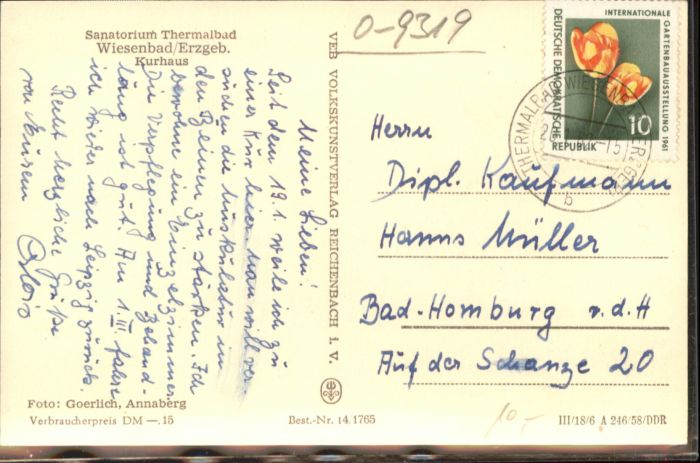 Sanatorium Thermalbad
Wiesenbad/Erzgeb.
Kurhaus
O-9319
Meine Lieben!
Seit dem 19.1. weile ich zu
einer Kur hier. Man will ver-
suchen die Muskulatur in
den Beinen zu stärken. Ich
bewohne ein Einzelzimmer.
Die Verpflegung und Behand-
lung ist gut. Am 1.III. fahre
ich wieder nach Leipzig zurück.
Recht herzliche Grüße
von Eurem
Alois
VEB VOLKSKUNSTVERLAG REICHENBACH i. V.
INTERNATIONALE
GARTENBAUAUSSTELLUNG 1961
DEUTSCHE DEMOKRATISCHE
REPUBLIK
10
THERMALBAD WIESENBAD
b
Herrn
Dipl. Kaufmann
Hanns Müller
Bad-Homburg v.d.H
Auf der Schanze 20
Foto: Goerlich, Annaberg
Verbraucherpreis DM —.15
Best.-Nr. 14,1765
10,-
III/18/6 A 246/58/DDR